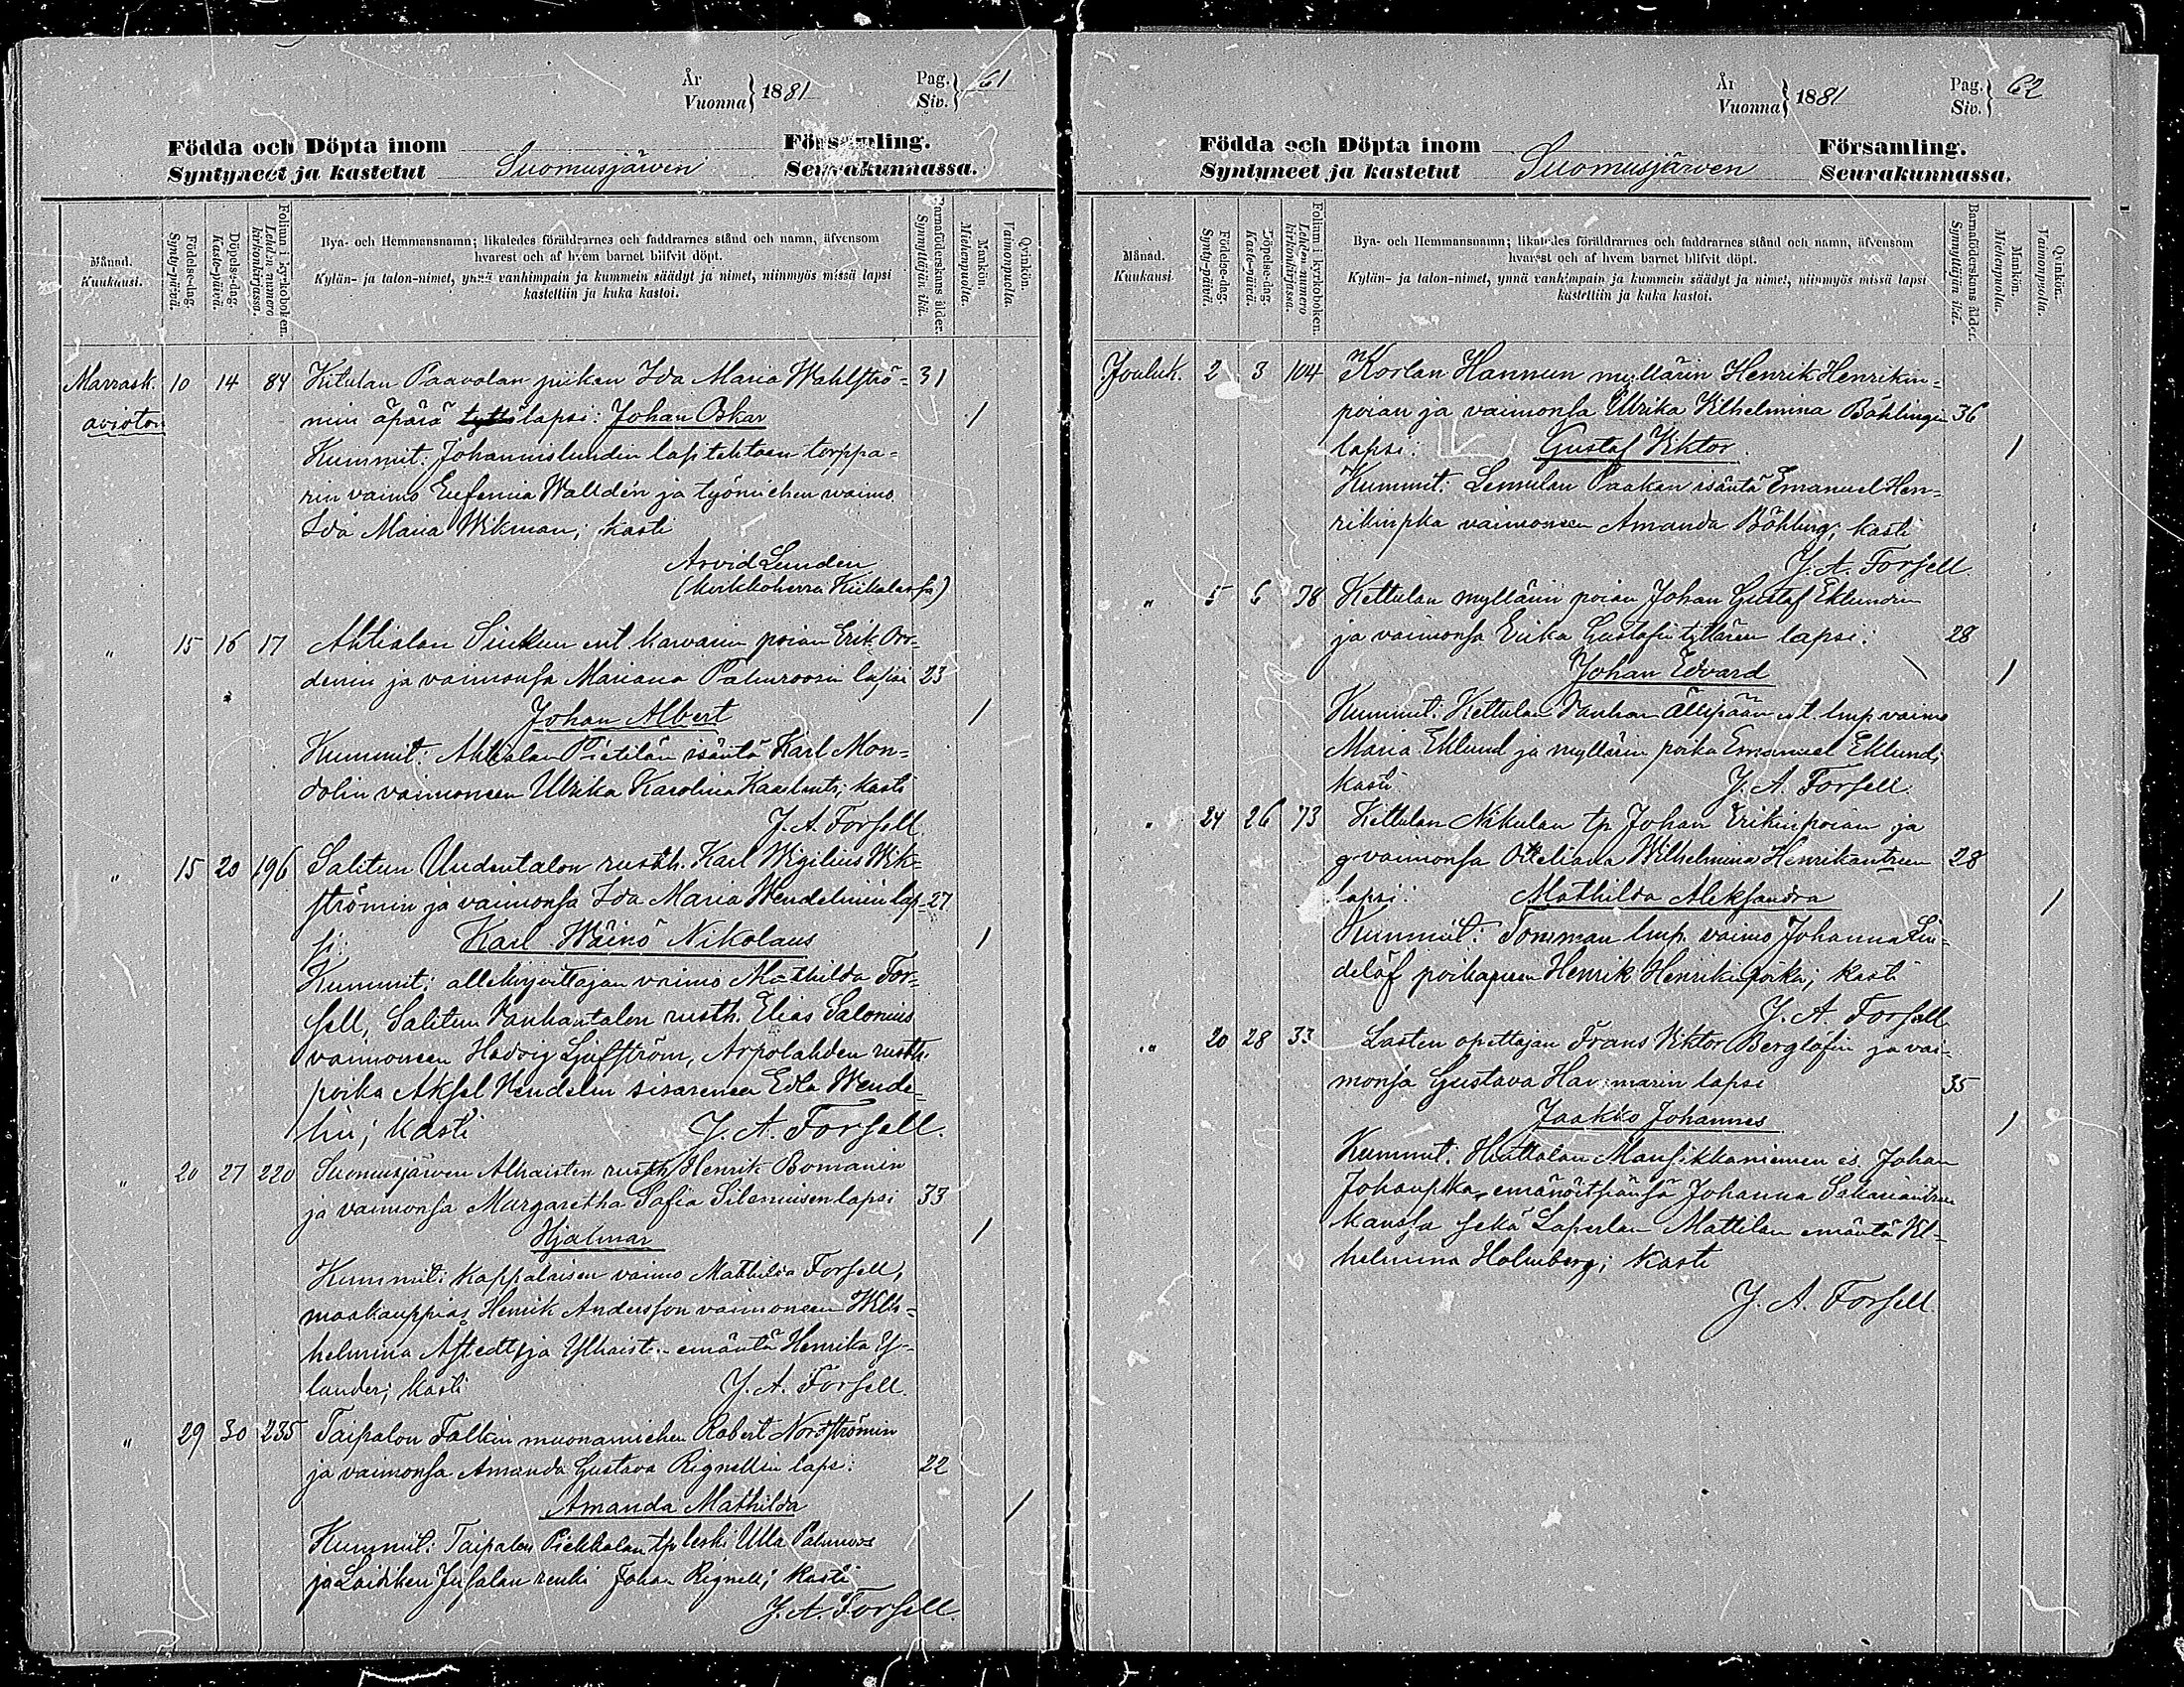 År
Vuonna } 1881
Pag.
Siv. } 61
Födda och Döpta inom Församling.
Syntyneet ja kastetut Suomusjärven Seurakunnassa.
Månad.
Kuukausi.
Födelse-dag.
Synty-päivä.
Döpelse-dag.
Kaste-päivä.
Folium i kyrkoboken.
Lehden-numero
kirkonkirjassa.
Bya- och Hemmansnamn; likaledes föräldrarnes och faddrarnes stånd och namn, äfvensom
hvarest och af hvem barnet blifvit döpt.
Kylän- ja talon-nimet, ynnä vanhimpain ja kummein säädyt ja nimet, niinmyös missä lapsi
kastettiin ja kuka kastoi.
Barnaföderskans ålder.
Synnyttäjän ikä.
Mankön.
Miehenpuolia.
Qvinkön.
Vaimonpuolia.
Marrask. 10 14 84 Kitulan Paavolan piikan Ida Maria Wahlströ- 31
avioton min äpärä lapsi: Johan Oskar 1
Kummit: Johannislundin lasitehtaan torppa-
rin vaimo Eufemia Walldén ja työmiehen vaimo
Ida Maria Wikman; kasti
Arvid Lunden
(kirkkoherra Kiikalassa)
" 15 16 17 Ahtialan Sinkun ent. poian Erik
ja vaimonsa Mariana Palmroosin lapsi 23
Johan Albert 1
Kummit: Ahtialan Pietilän isäntä Karl Mon-
dolin vaimoneen Ulrika Karolina kasti
J. A. Forsell
" 15 20 196 Salitun Uudentalon rusth. Karl Wigilius Wik-
strömin ja vaimonsa Ida Maria Wendelinin lap- 27
si: Karl Wäinö Nikolaus 1
Kummit: allekirjoittajan vaimo Mathilda For-
sell, Salitun Vanhantalon rusth. Elias Salonius
vaimoneen Hedvig Ljufström, Arpolahden rusth.
poika Aksel Wendelin sisarensa Edla Wende-
lin; kasti J. A. Forsell.
" 20 27 220 Suomusjärven Alhaisten rusth. Henrik Bomanin
ja vaimonsa Margaretha Sofia lapsi 33
Hjalmar 1
Kummit: kappalaisen vaimo Mathilda Forsell,
maakauppias Henrik Andersson vaimoneen Wil-
helmina ja emäntä Henrika Y-
lander; kasti J. A. Forsell.
" 29 30 235 Taipalon Falkin muonamiehen Robert Nordströmin
ja vaimonsa Amanda Gustava Rignellin lapsi: 22
Amanda Mathilda 1
Kummit: Taipalon Piekkalan tp leski Ulla Palmroos
ja renki Johan Rignell; kasti
J. A. Forsell
År
Vuonna } 1881
Pag.
Siv. } 62
Födda och Döpta inom Församling.
Syntyneet ja kastetut Suomusjärven Seurakunnassa.
Månad.
Kuukausi.
Födelse-dag.
Synty-päivä.
Döpelse-dag.
Kaste-päivä.
Folium i kyrkoboken.
Lehden-numero
kirkonkirjassa.
Bya- och Hemmansnamn; likaledes föräldrarnes och faddrarnes stånd och namn, äfvensom
hvarest och af hvem barnet blifvit döpt.
Kylän- ja talon-nimet, ynnä vanhimpain ja kummein säädyt ja nimet, niinmyös missä lapsi
kastettiin ja kuka kastoi.
Barnaföderskans ålder.
Synnyttäjän ikä.
Mankön.
Miehenpuolia.
Qvinkön.
Vaimonpuolia.
Jouluk. 2 3 104 Korlan Hannun myllärin Henrik Henrikin-
poian ja vaimonsa Ulrika Wilhelmina Böhlingin 36
lapsi: Gustaf Viktor 1
Kummit: Lemulan Paakan isäntä Emanuel Hen-
rikinpka vaimoneen Amanda Böhling; kasti
J. A. Forsell.
" 5 6 78 Kettulan myllärin poian Johan Gustaf Eklundin
ja vaimonsa Erika Gustafin tyttären lapsi: 28
Johan Edvard 1
Kummit: Kettulan VanhanÄllipään ent. lmp vaimo
Maria Eklund ja myllärin poika Emanuel Eklund;
kasti J. A. Forsell.
" 24 26 73 Kettulan Nikulan tp. Johan Erikinpoian ja
vaimonsa Wilhelmina Henrikantren 28
lapsi: Mathilda Aleksandra 1
Kummit: Tomman lmp. vaimo Johanna Lin-
delöf poikaneen Henrik Henrikinpoika; kasti
J. A. Forsell
" 20 28 33 Lasten opettajan Frans Viktor Berglöfin ja vai-
monsa Gustava lapsi 35
Jaakko Johannes 1
Kummit: Mansikkaniemen Johan
Johanpka emänöitsiänsä Johanna
kanssa sekä Laperlan Mattilan emäntä Vil-
helmina Holmberg; kasti
J. A. Forsell.